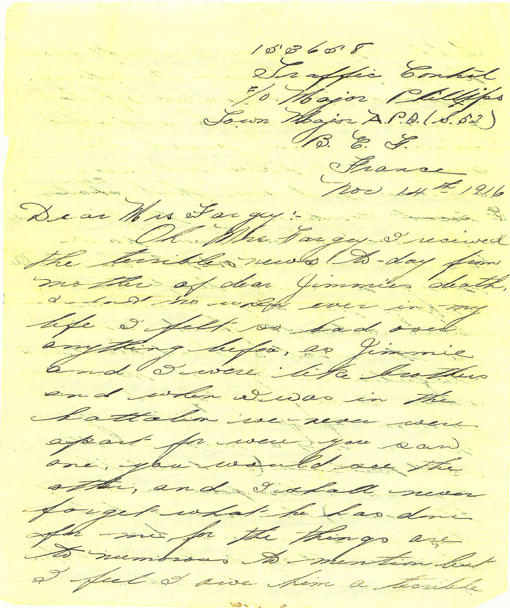 153658
Traffic Control
c/o Major Phillips
Town Major A.P.O. (S.52)
B. E. F.
France
Nov 14th 1916
Dear Mrs Fargey:-
Oh Mrs. Fargey I received
the terrible news to-day from
mother of dear Jimmies death,
no when ever in my
life I felt so bad over
anything before, as Jimmie
and I were like brothers
and when I was in the
battalion we never were
apart for were you saw
one, you would see the
other, and I shall never
forget what he has done
for me for the things are
to numorous to mention but
I feel I owe him a terrible